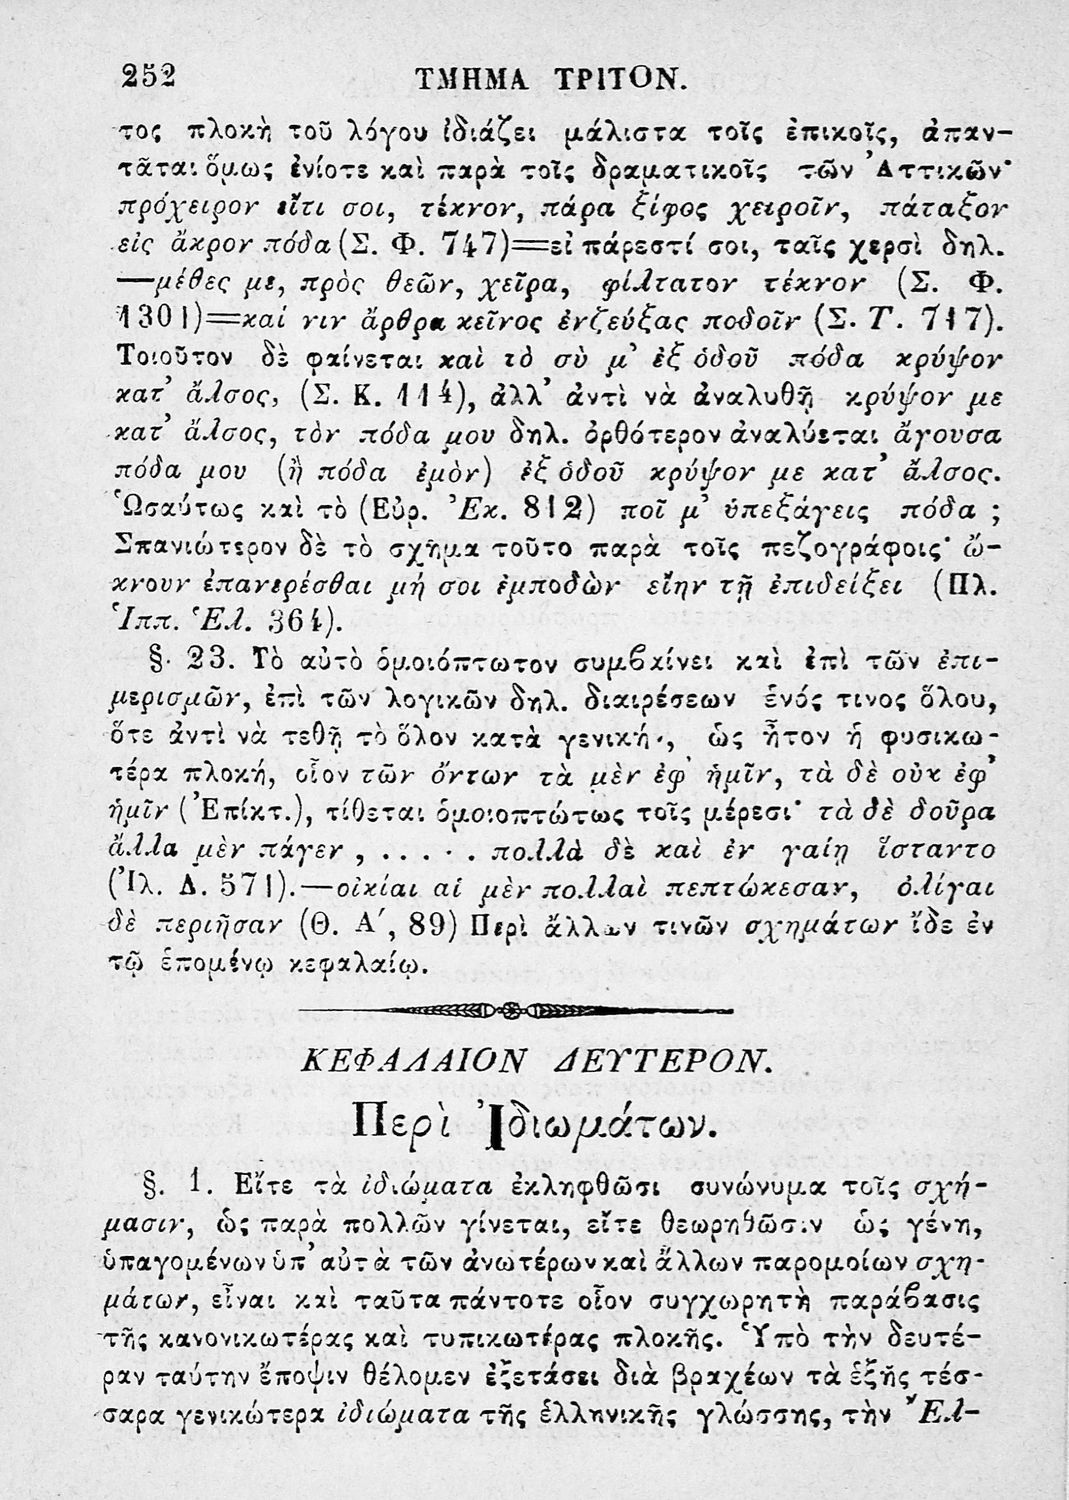 252 ΤΜΗΜΑ ΤΡΙΤΟΝ.
τος πλοκὴ τοῦ λόγου ἰδιάζει μάλιστα τοῖς ἐπικοῖς, ἀπαν-
τᾶται ὅμως ἐνίοτε καὶ παρὰ τοῖς δραματικοῖς τῶν Ἀττικῶν·
πρόχειρον εἴτι σοι, τέκνον, πάρα ξίφος χειροῖν, πάταξον
εἰς ἄκρον πόδα (Σ. Φ. 747)=εἰ πάρεστί σοι, ταῖς χερσὶ δηλ.
—μέθες με, πρὸς θεῶν, χεῖρα, φίλτατον τέκνον (Σ. Φ.
1301)=καί νιν ἄρθρα κεῖνος ἐνζεύξας ποδοῖν (Σ. Τ. 717).
Τοιοῦτον δὲ φαίνεται καὶ τὸ σὺ μ' ἐξ ὁδοῦ πόδα κρύψον
κατ' ἄλσος, (Σ. Κ. 114), ἀλλ' ἀντὶ νὰ ἀναλυθῇ κρύψον με
κατ' ἄλσος, τὸν πόδα μου δηλ. ὀρθότερον ἀναλύεται ἄγουσα
πόδα μου (ἢ πόδα ἐμὸν) ἐξ ὁδοῦ κρύψον με κατ' ἄλσος.
Ὡσαύτως καὶ τὸ (Εὐρ. Ἐκ. 812) ποῖ μ' ὑπεξάγεις πόδα ;
Σπανιώτερον δὲ τὸ σχῆμα τοῦτο παρὰ τοῖς πεζογράφοις· ὤ-
κνουν ἐπανερέσθαι μή σοι ἐμποδὼν εἴην τῇ ἐπιδείξει (Πλ.
Ἱππ. Ἑλ. 364).
§. 23. Τὸ αὐτὸ ὁμοιόπτωτον συμβαίνει καὶ ἐπὶ τῶν ἐπι-
μερισμῶν, ἐπὶ τῶν λογικῶν δηλ. διαιρέσεων ἑνός τινος ὅλου,
ὅτε ἀντὶ νὰ τεθῇ τὸ ὅλον κατὰ γενικήν, ὡς ἦτον ἡ φυσικω-
τέρα πλοκή, οἷον τῶν ὄντων τὰ μὲν ἐφ' ἡμῖν, τὰ δὲ οὐκ ἐφ'
ἡμῖν (Ἐπίκτ.), τίθεται ὁμοιοπτώτως τοῖς μέρεσι· τὰ δὲ δοῦρα
ἄλλα μὲν πάγεν , ..... πολλὰ δὲ καὶ ἐν γαίῃ ἵσταντο
(Ἰλ. Λ. 571).—οἰκίαι αἱ μὲν πολλαὶ πεπτώκεσαν, ὀλίγαι
δὲ περιῆσαν (Θ. Α', 89) Περὶ ἄλλων τινῶν σχημάτων ἴδε ἐν
τῷ ἑπομένῳ κεφαλαίῳ.
ΚΕΦΑΛΑΙΟΝ ΔΕΥΤΕΡΟΝ.
Περὶ Ἰδιωμάτων.
§. 1. Εἴτε τὰ ἰδιώματα ἐκληφθῶσι συνώνυμα τοῖς σχή-
μασιν, ὡς παρὰ πολλῶν γίνεται, εἴτε θεωρηθῶσιν ὡς γένη,
ὑπαγομένων ὑπ' αὐτὰ τῶν ἀνωτέρων καὶ ἄλλων παρομοίων σχη-
μάτων, εἶναι καὶ ταῦτα πάντοτε οἷον συγχωρητὴ παράβασις
τῆς κανονικωτέρας καὶ τυπικωτέρας πλοκῆς. Ὑπὸ τὴν δευτέ-
ραν ταύτην ἔποψιν θέλομεν ἐξετάσει διὰ βραχέων τὰ ἑξῆς τέσ-
σαρα γενικώτερα ἰδιώματα τῆς ἑλληνικῆς γλώσσης, τὴν Ἔλ-